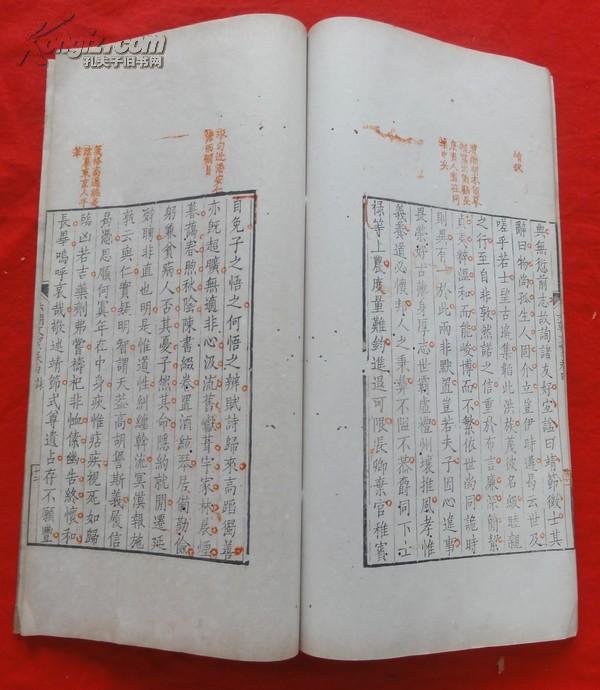 典無愆前志故詢諸友好宜謚曰靖節徵士其
辭曰物尚孤生人固介立豈伊時遘曷云世及
嗟乎若士望古遙集韜此洪族蔑彼名級睦親
之行至自非敦然諾之信重於布言廉深簡絜
貞夷粹溫和而能峻博而不繁依世尚同詭時
則異有一於此兩非默置豈若夫子因心違事
畏榮好古薄身厚志世霸虛禮州壤推風孝惟
義養道必懷邦人之秉彝不隘不恭爵同下士
祿等上農度量難鈞進退可限長卿棄官稚賓
自免子之悟之何悟之辯賦詩歸來高蹈獨善
亦旣超曠無適非心汲流舊巘葺宇家林晨煙
暮藹春煦秋陰陳書綴卷置酒絃琴居備勤儉
躬兼貧病人否其憂子然其命隱約就閒遷延
辭聘非直也明是惟道性糾纆斡流冥漠報施
孰云與仁實疑明智謂天蓋高胡諐斯義履信
曷憑思順何寘年在中身疢惟痁疾視死如歸
臨凶若吉藥劑弗嘗禱祀非恤傃幽告終懷和
長畢嗚呼哀哉敬述靖節式尊遺占存不願豐
Kongfz.com
孔夫子旧书网